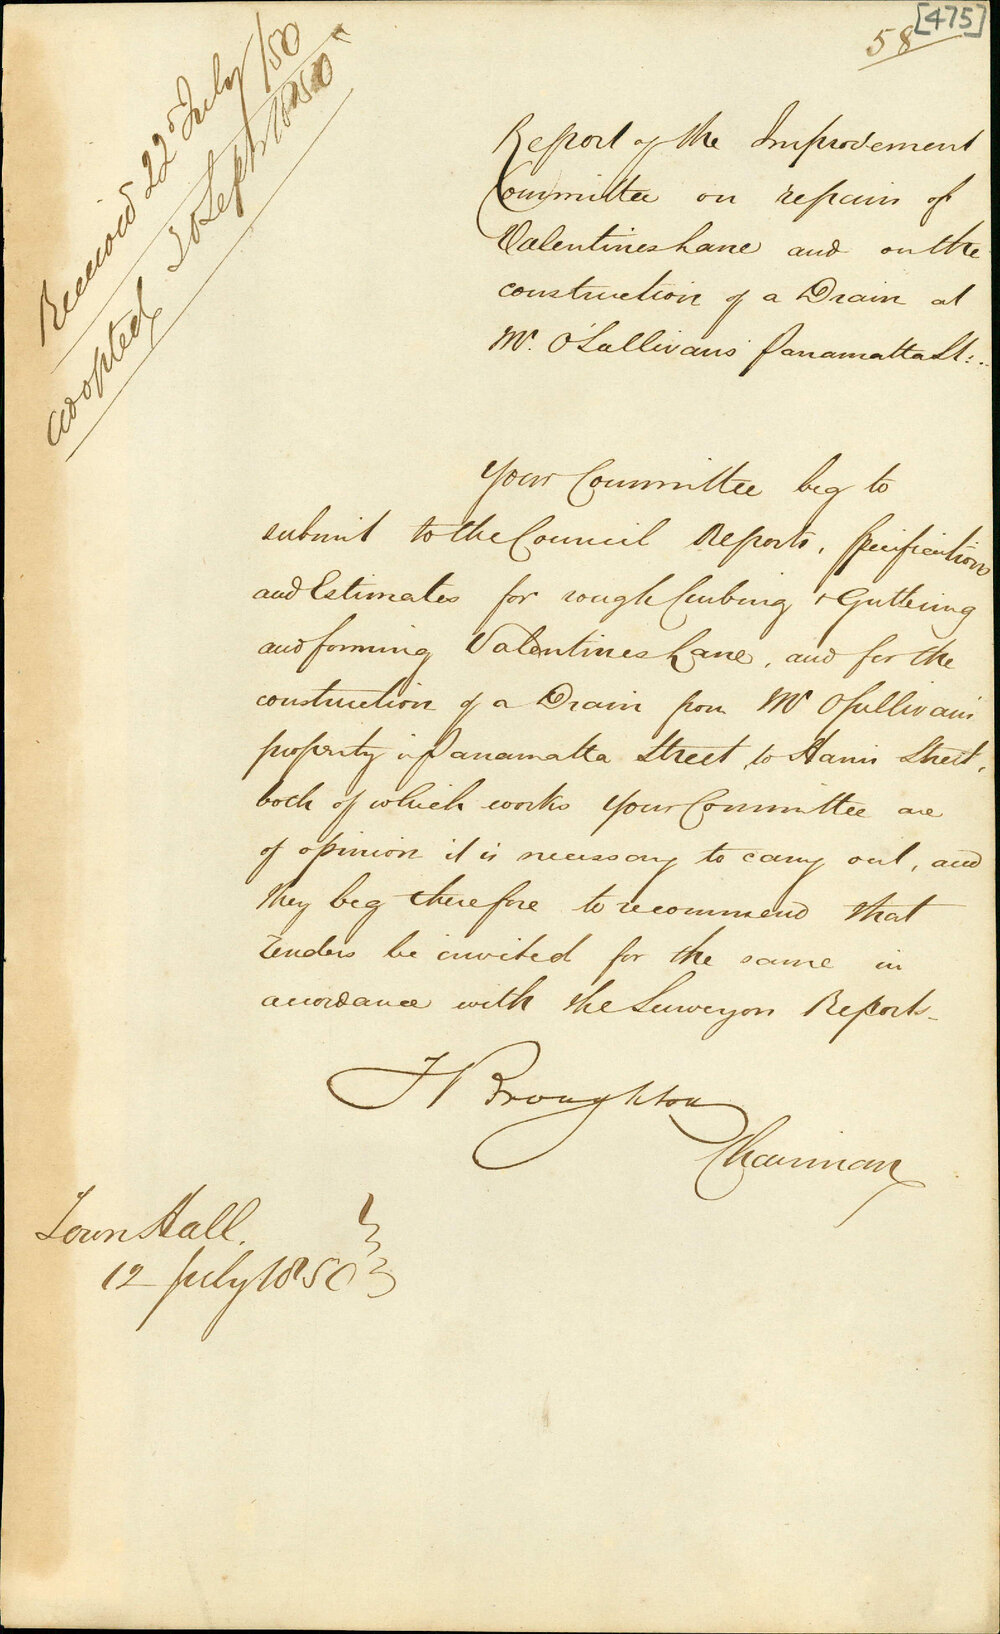 [475]
58
Received 22d July /50
adopted 30 Sept 1850
Report of the Improvement
Committee on repairs of
Valentines Lane and on the
construction of a Drain at
Mr. O'Sullivans Parramatta St:.
Your Committee beg to
submit to the Council Reports, Specifications
and Estimates for rough Curbing & Guttering
and forming Valentines Lane, and for the
construction of a Drain from Mr O'Sullivans
property in Parramatta Street to Harris Street,
both of which works Your Committee are
of opinion it is necessary to carry out, and
they beg therefore to recommend that
Tenders be invited for the same in
accordance with the Surveyors Reports_
Broughton
Chairman
Town Hall.
12 July 1850